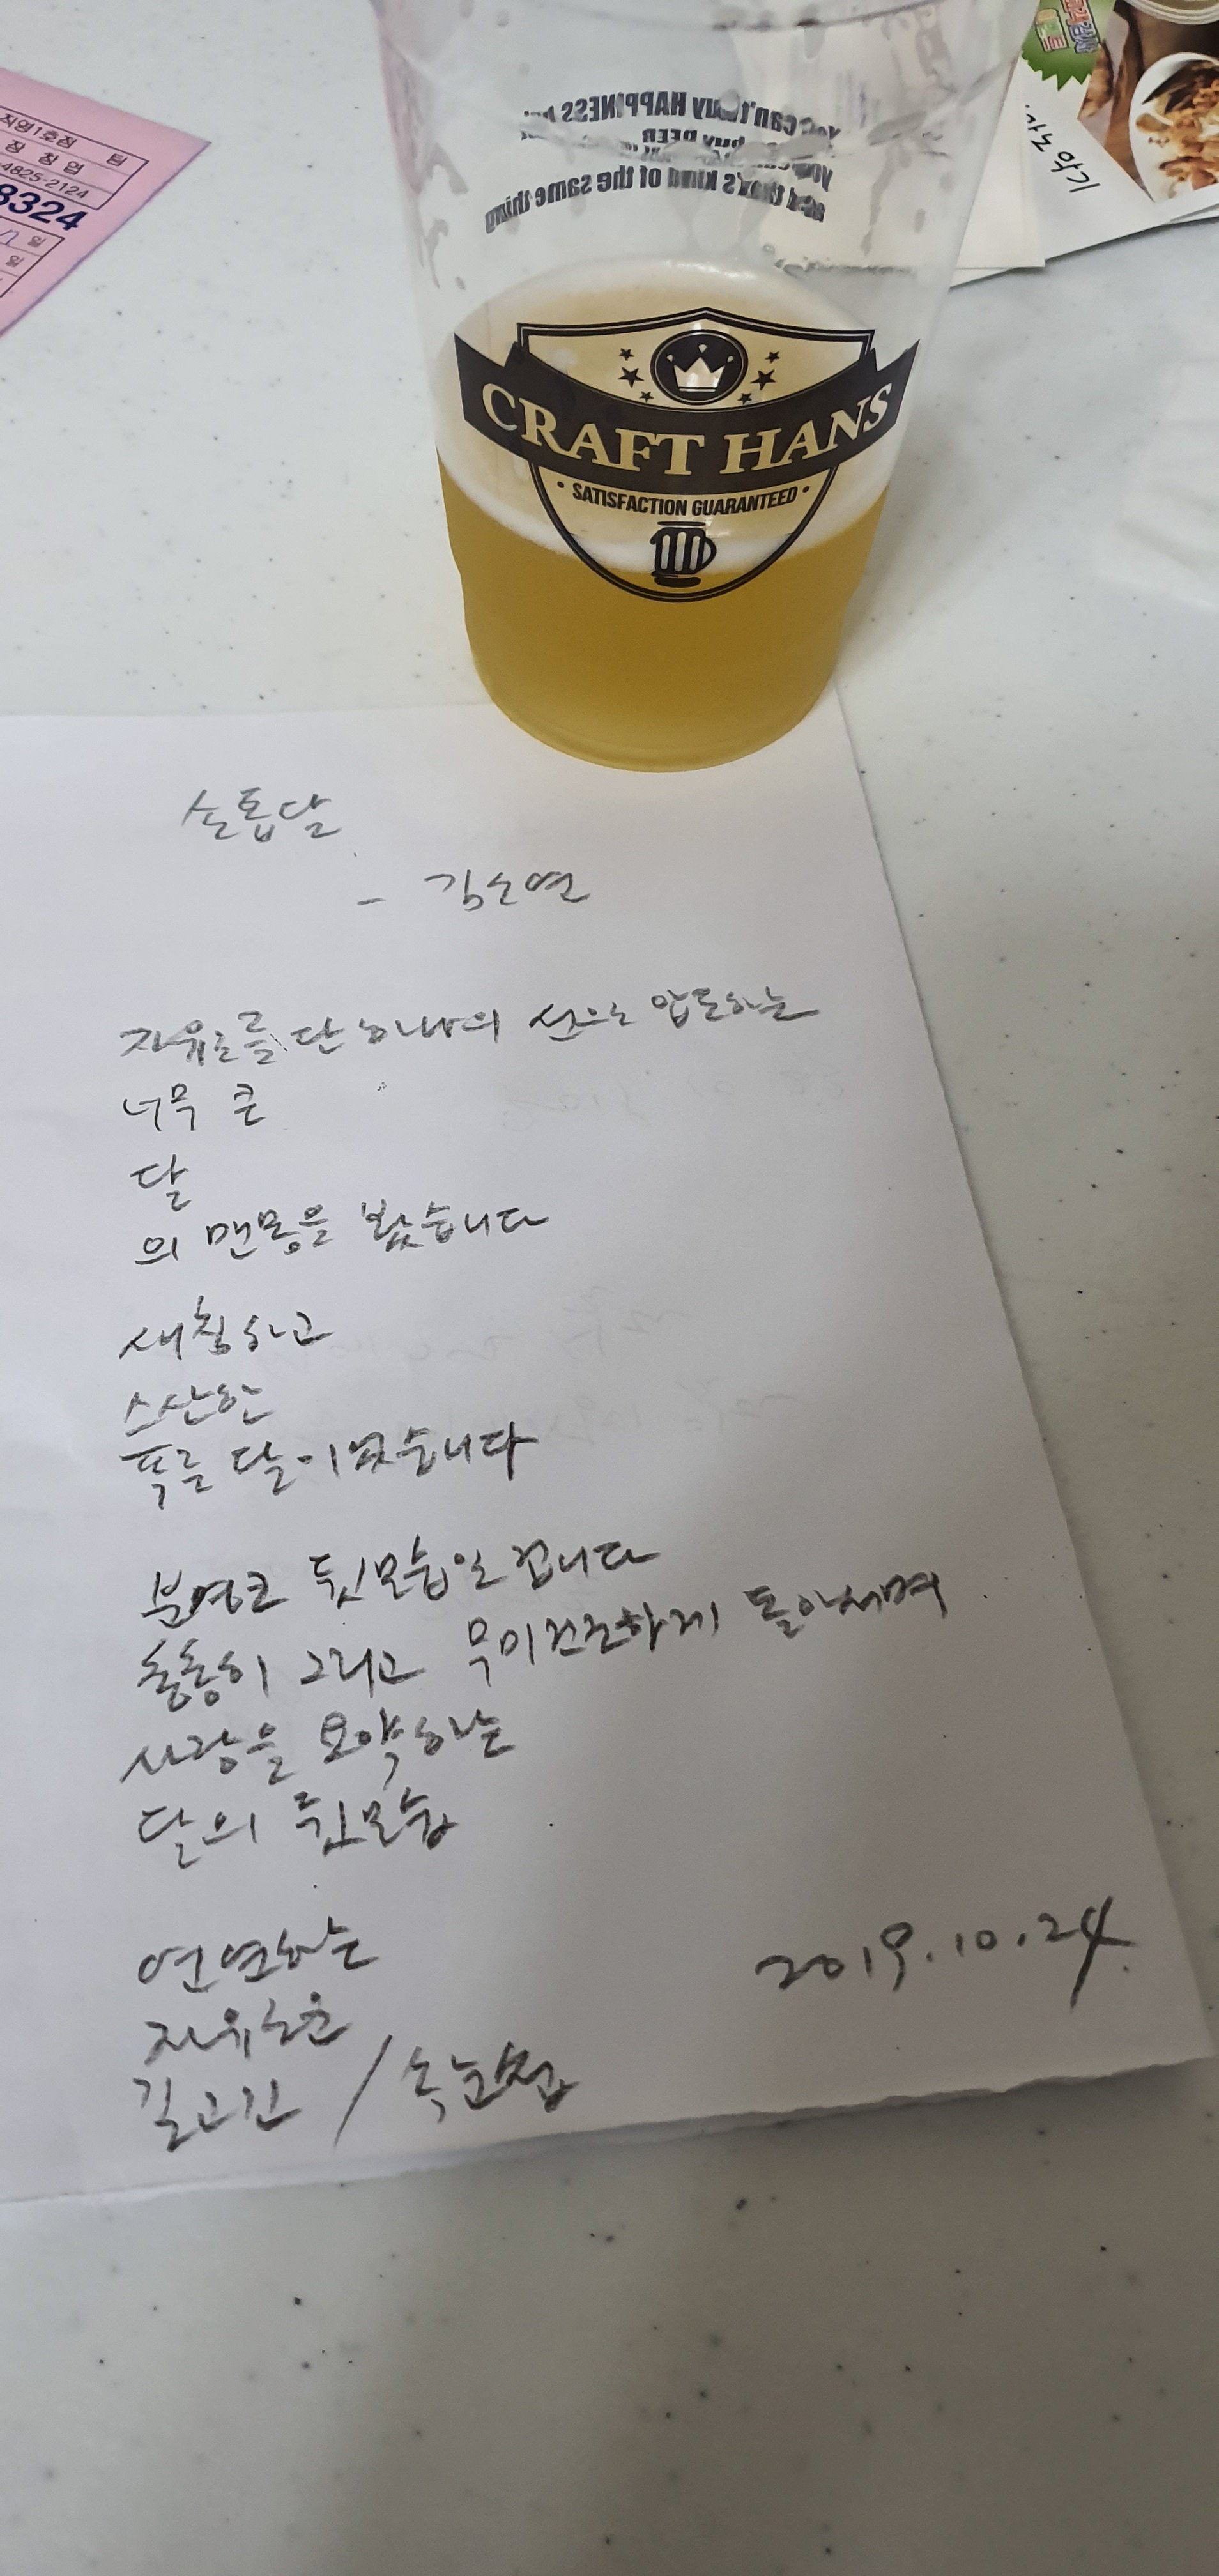 직영1호점 팀
장 창 업
4825-2124
8324
일
일
You can't buy HAPPINESS
you buy BEER
and that's kind of the same thing
CRAFT HANS
SATISFACTION GUARANTEED
손톱달
- 김소연
자유로를 단 하나의 선으로 압도하는
너무 큰
달
의 맨몸을 봤습니다
새침하고
스산한
푸른 달이었습니다
분명코 뒷모습일 겁니다
총총히 그리고 무미건조하게 돌아서며
사랑을 요약하는
달의 뒷모습
연연하는
자유로운
길고긴 / 속눈썹
2019.10.24.